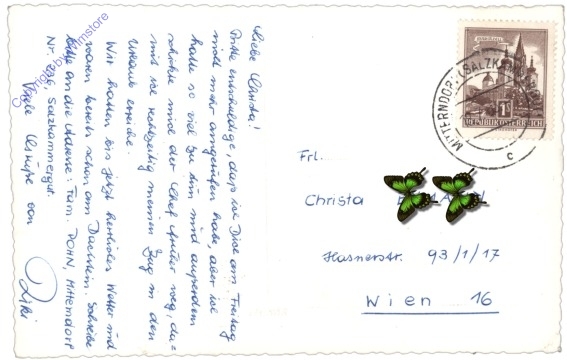 Liebe Christa!
Bitte entschuldige, dass ich Dich am Freitag
nicht mehr angerufen habe, aber ich
hatte so viel zu tun und außerdem
schickte mich der Chef früher weg, da-
mit ich rechtzeitig meinen Zug in den
Urlaub erreiche.
Wir hatten bis jetzt herrliches Wetter und
waren bereits schon am Dachstein. Schreibe
bitte an die Adresse: Fam. POHN, Mitterndorf
Nr. 226, Salzkammergut.
Viele Grüße von
Riki
Copyright by filmstore
MITTERNDORF (SALZKAMMERGUT)
c
1S
REPUBLIK ÖSTERREICH
Frl.
Christa
Hasnerstr. 93/1/17
Wien 16